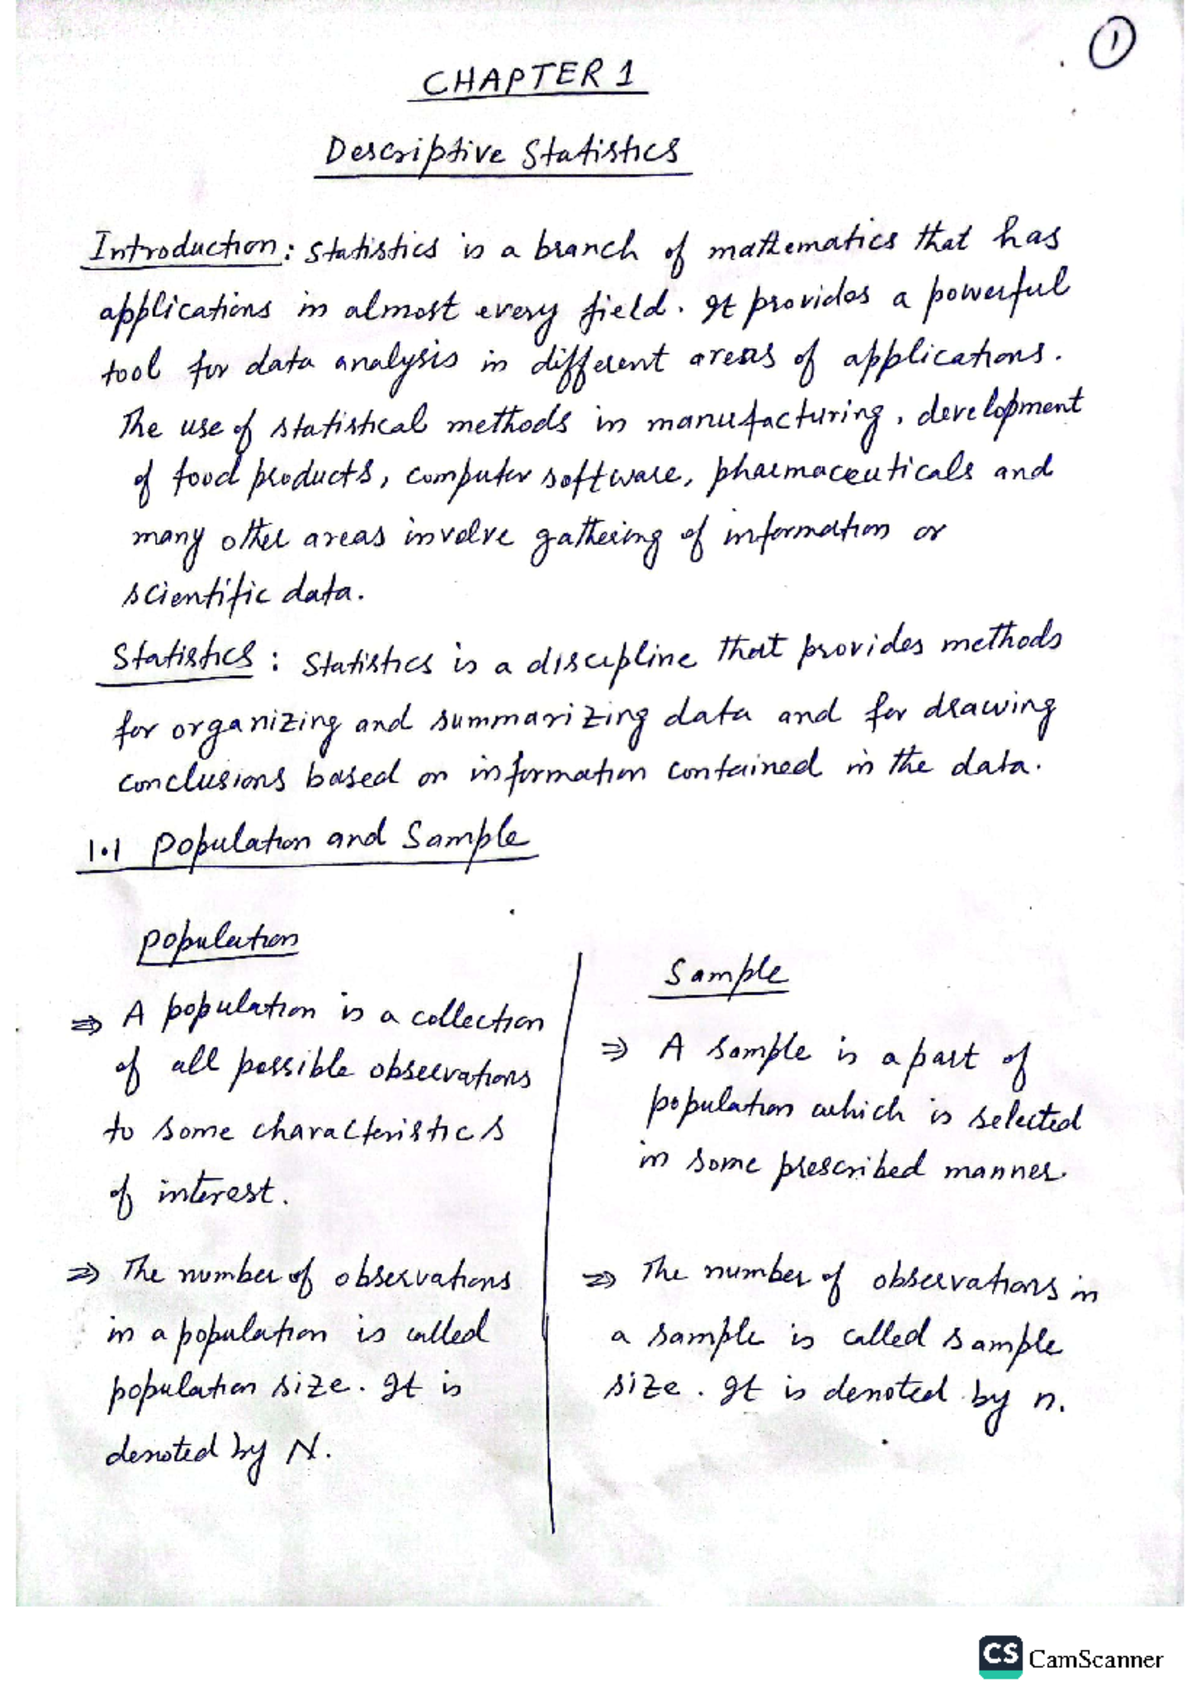 1
CHAPTER 1
Descriptive Statistics
Introduction: Statistics is a branch of mathematics that has
applications in almost every field. It provides a powerful
tool for data analysis in different areas of applications.
The use of statistical methods in manufacturing, development
of food products, computer software, pharmaceuticals and
many other areas involve gathering of information or
scientific data.
Statistics: Statistics is a discipline that provides methods
for organizing and summarizing data and for drawing
conclusions based on information contained in the data.
1.1 Population and Sample
Population
⇒ A population is a collection
of all possible observations
to some characteristics
of interest.
⇒ The number of observations
in a population is called
population size. It is
denoted by N.
Sample
⇒ A sample is a part of
population which is selected
in some prescribed manner.
⇒ The number of observations in
a sample is called sample
size. It is denoted by n.
CS CamScanner